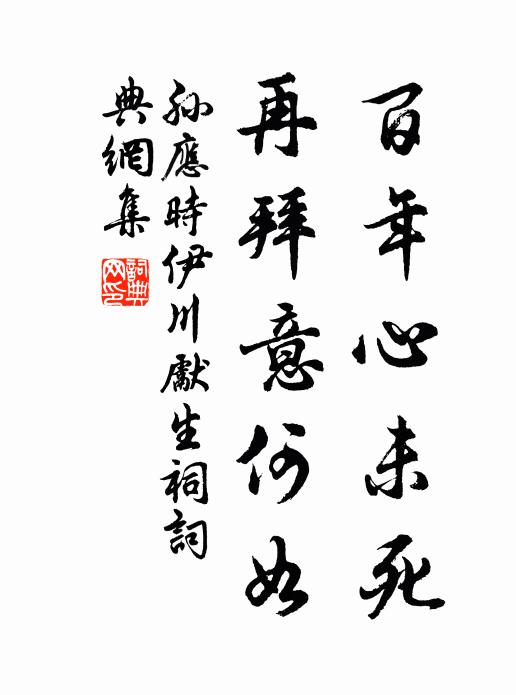 百年心未死
再拜意何如
孫應時伊川獻生祠詞
典網集
詞典網印